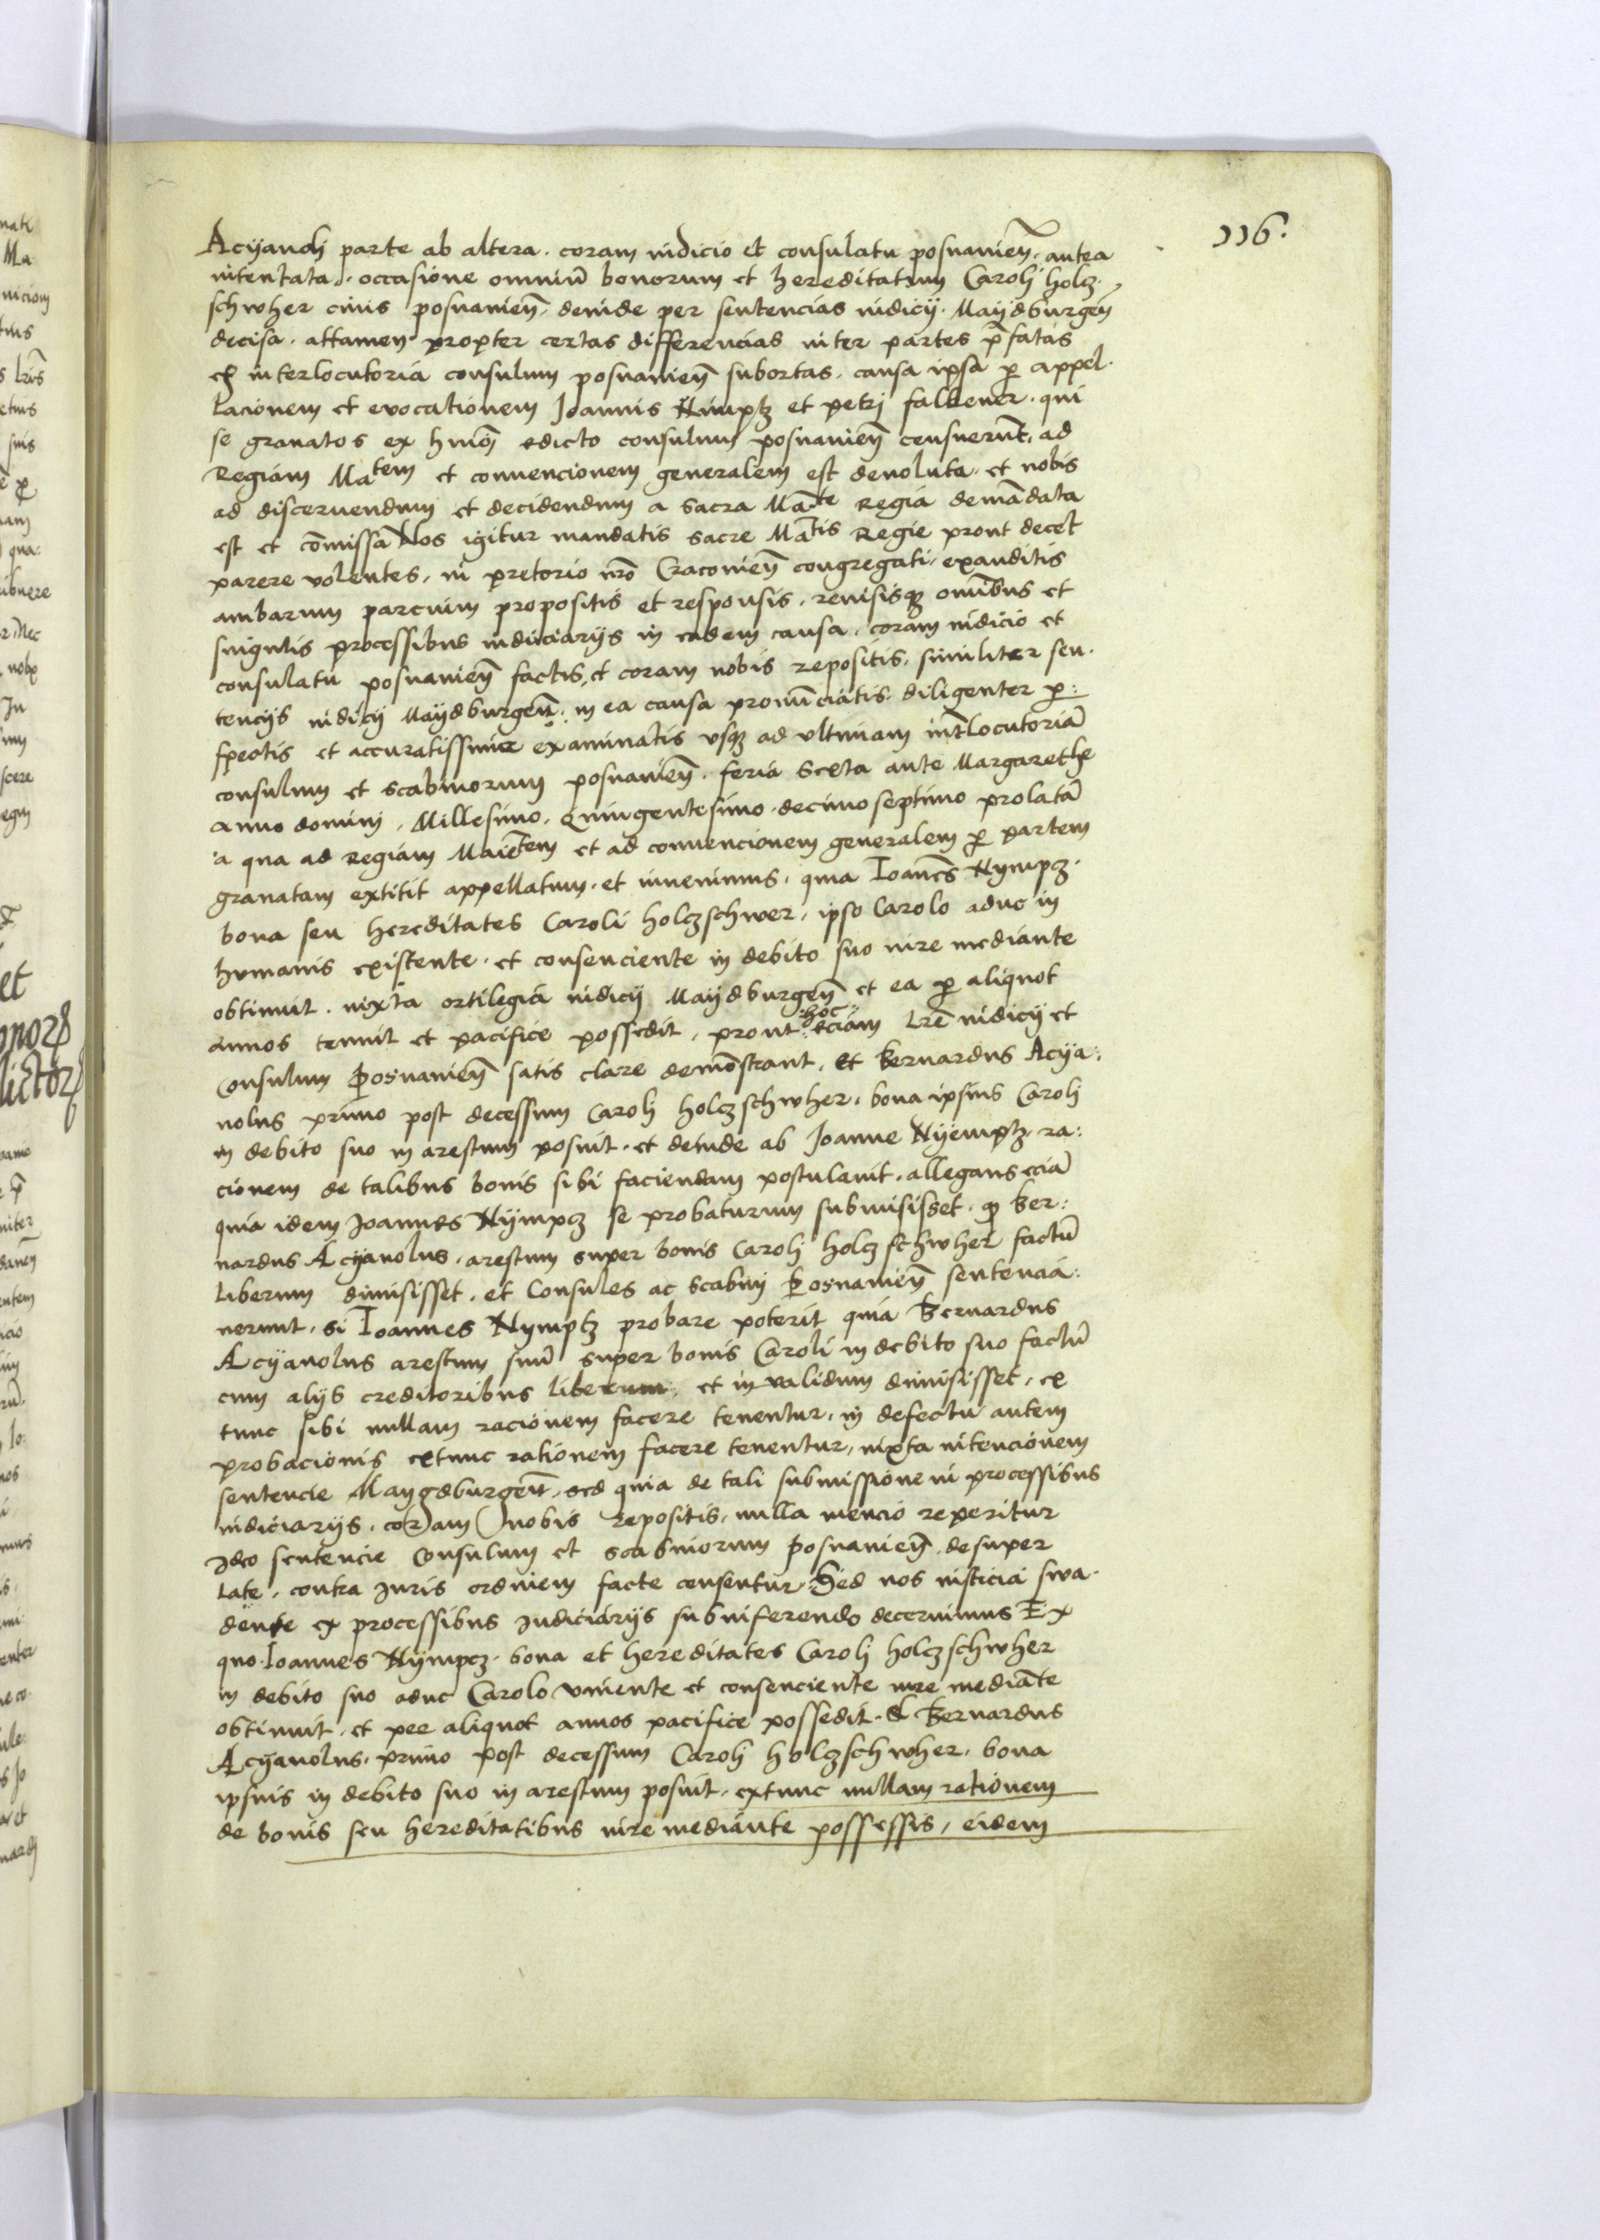 116.
Acyanoli parte ab altera. coram iudicio et consulatu posnanieñ. antea
intentata. occasione omniū bonorum et hereditatum Caroli holcz
schwher ciuis posnanieñ. deinde per sentencias iudicij. Maydburgeñ
decisa. attamen propter certas differencias inter partes p̄fatas
ex interlocutoria consulum posnanieñ subortas. causa ipsa ꝑ appel-
lacionem et euocationem Joannis Nimptz et petri falkener. qui
se grauatos ex hmōi edicto consulum posnanieñ censuerūt. ad
Regiam Matem et conuencionem generalem est deuoluta. et nobis
ad discernendum et decidendum a sacra Mate Regia demādata
est et cōmissa Nos igitur mandatis sacre Matis Regie prout decet
parere volentes. in pretorio nrō Cracouieñ congregati. exauditis
ambarum parcium propositis et responsis. reuisisqꝫ omībus et
singulis processibus iudiciarijs in eadem causa. coram iudicio et
consulatu posnanieñ factis, et coram nobis repositis. similiter sen-
tencijs iudicij Maydburgeñ. in ea causa pronūciatis diligenter ꝑ:
spectis et accuratissime examinatis vsqꝫ ad vltimam int̄locutoriā
consulum et scabinorum posnanieñ. feria sexta ante Margarethe
anno domini. Millesimo. Quingentesimo. decimo septimo prolatā
a qua ad Regiam Maiestem et ad conuencionem generalem ꝑ partem
grauatam extitit appellatum. et inuenimus. quia Joanēs Nympcz.
bona seu hereditates Caroli holczschwer. ipso Carolo aduc in
humanis existente. et consenciente in debito suo iure mediante
obtinuit. iuxta ortilegia iudicij Maydburgeñ et ea ꝑ aliquot
annos tenuit et pacifice possedit. prout :hoc: eciam Lrē iudicij et
Consulum Posnanieñ satis clare demōstrant. et Bernardus Acya:
nolus primo post decessum Caroli holczschwher. bona ipsius Caroli
in debito suo in arestum posuit. et deinde ab Joanne Nyemptz. ra:
cionem de talibus bonis sibi faciendam postulauit. allegans eciā
quia idem Joannes Nympcz se probaturum submisisset. qꝫ Ber:
nardus Acyanolus. arestum super bonis Caroli holczschwher factū
Liberum dimisisset. et Consules ac scabini Posnanieñ sentencia:
uerunt. si Joannes Nymptz probare poterit quia Bernardus
Acyanolus arestum suū super bonis Caroli in debito suo factū
cum alijs creditoribus liberum. et inualidum dimisisset. ex
tunc sibi nullam racionem facere tenentur. in defectu autem
probacionis extunc rationem facere tenentur, iuxta intencionem
sentencie Maygdburgeñ. sed quia de tali submissione in processibus
iudiciarijs. coram nobis repositis. nulla mencio reperitur
Ideo sentencie Consulum et scabinorum posnanieñ. desuper
Late. contra Juris ordinem facte censentur. Sed nos iusticia swa-
dente ex processibus Judiciarijs subinferendo decernimus Ex
quo. Joannes Nympcz. bona et hereditates Caroli holczschwher
in debito suo aduc Carolo viuente et consenciente iure mediāte
obtinuit. et per aliquot annos pacifice possedit. & Bernardus
Acyanolus. primo post decessum Caroli holczschwher. bona
ipsius in debito suo in arestum posuit. extunc nullam rationem
de bonis seu hereditatibus iure mediante possessis, eidem